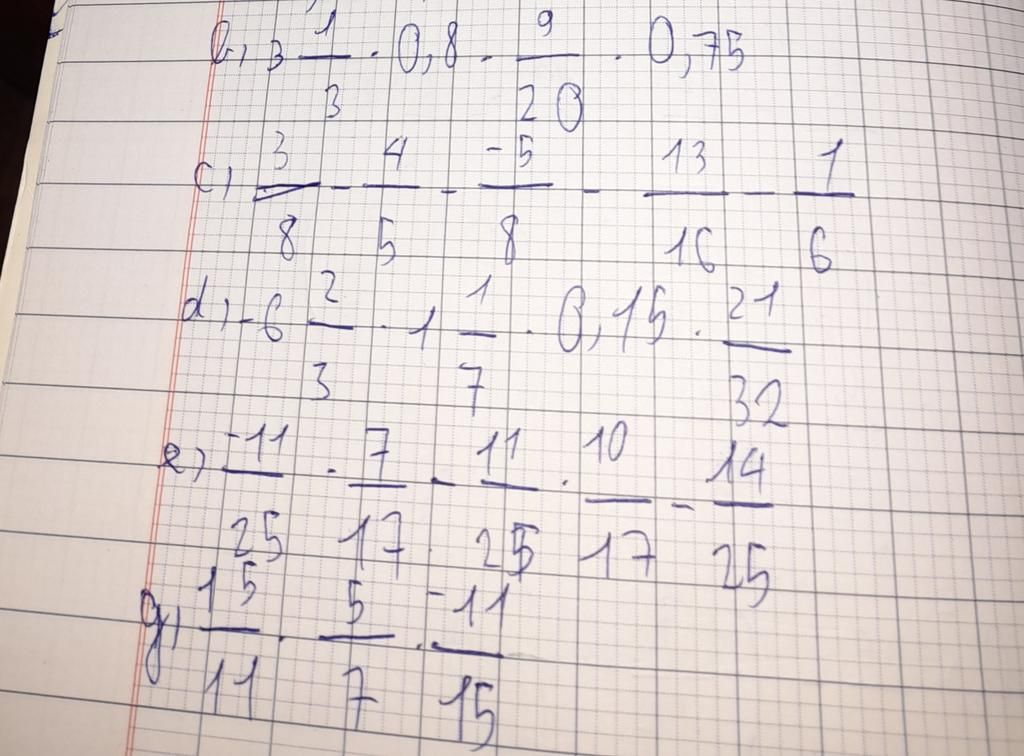 b) 3 1/3 · 0,8 · 9/20 · 0,75
c) 3/8 - 4/5 - -5/8 - 13/16 - 1/6
d) -6 2/3 · 1 1/7 · 0,15 · 21/32
e) -11/25 · 7/17 - 11/25 · 10/17 - 14/25
g) 15/11 · 5/7 · -11/15